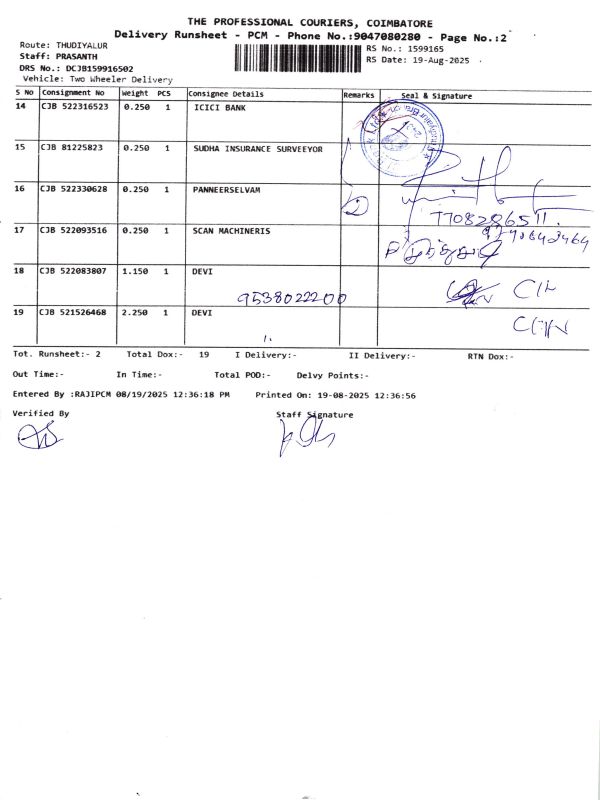 THE PROFESSIONAL COURIERS, COIMBATORE
Delivery Runsheet - PCM - Phone No.:9047080280 - Page No.:2
Route: THUDIYALUR
Staff: PRASANTH
DRS No.: DCJB159916502
Vehicle: Two Wheeler Delivery
RS No.: 1599165
RS Date: 19-Aug-2025
S No Consignment No Weight PCS Consignee Details Remarks Seal & Signature
14 CJB 522316523 0.250 1 ICICI BANK
15 CJB 81225823 0.250 1 SUDHA INSURANCE SURVEEYOR
16 CJB 522330628 0.250 1 PANNEERSELVAM
7708286511.
17 CJB 522093516 0.250 1 SCAN MACHINERIS
18 CJB 522083807 1.150 1 DEVI
9538022200
19 CJB 521526468 2.250 1 DEVI
Tot. Runsheet:- 2 Total Dox:- 19 I Delivery:- II Delivery:- RTN Dox:-
Out Time:- In Time:- Total POD:- Delvy Points:-
Entered By :RAJIPCM 08/19/2025 12:36:18 PM Printed On: 19-08-2025 12:36:56
Verified By Staff Signature